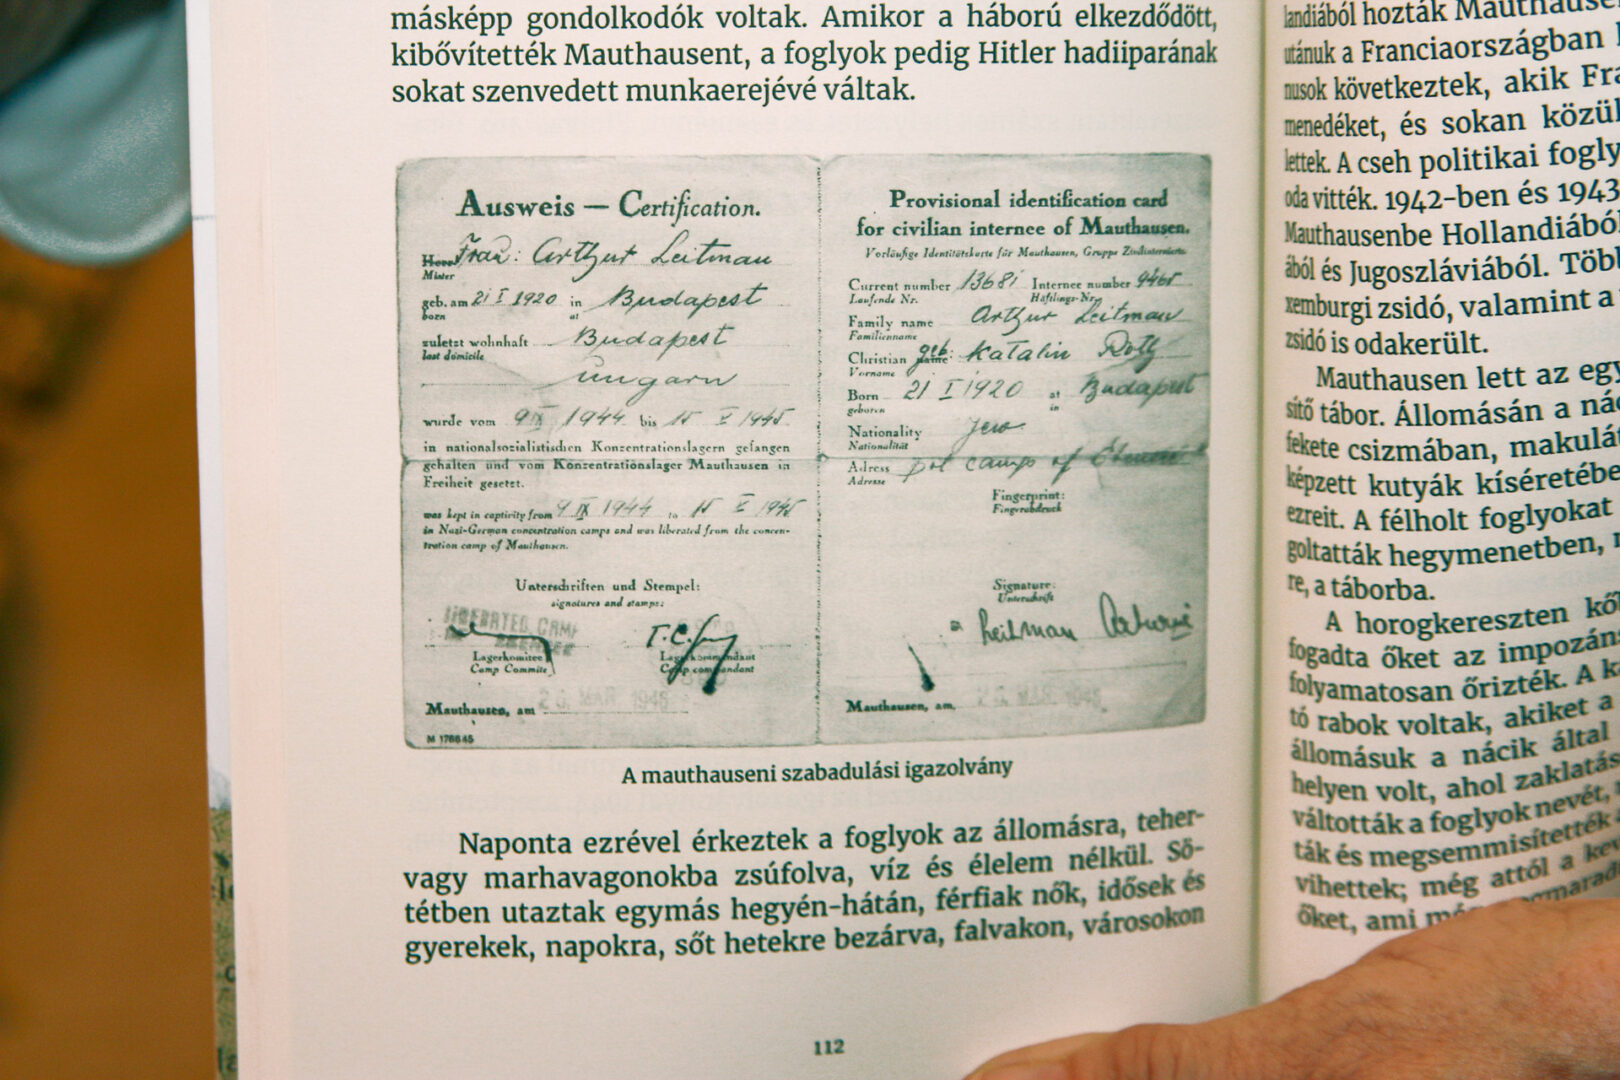 másképp gondolkodók voltak. Amikor a háború elkezdődött,
kibővítették Mauthausent, a foglyok pedig Hitler hadiiparának
sokat szenvedett munkaerejévé váltak.
Ausweis — Certification.
Herr Frau: Arthur Leitman
Mister
geb. am 21 I 1920 in Budapest
born at
zuletzt wohnhaft Budapest
last domicile
Ungarn
wurde vom 9 IX 1944 bis 15 V 1945
in nationalsozialistischen Konzentrationslagern gefangen
gehalten und vom Konzentrationslager Mauthausen in
Freiheit gesetzt.
was kept in captivity from 9 IX 1944 to 15 V 1945
in Nazi-German concentration camps and was liberated from the concen-
tration camp of Mauthausen.
Unterschriften und Stempel:
signatures and stamps:
LIBERATED CAMP
Lagerkomitee Lagerkommandant
Camp Commitee Camp commandant
Mauthausen, am 26 MAR 1946
M 1766 45
Provisional identification card
for civilian internee of Mauthausen.
Vorläufige Identitätskarte für Mauthausen, Gruppe Zivilinternierte
Current number 13681 Internee number 9465
Laufende Nr. Häftlings-Nr.
Family name Arthur Leitman
Familienname
Christian name geb: Katalin Roth
Vorname
Born 21 I 1920 at Budapest
geboren in
Nationality Jew
Nationalität
Adress pol camps of
Adresse
Fingerprint:
Fingerabdruck
Signature:
Unterschrift
Leitman
Mauthausen, am. 26 MAR 1946
A mauthauseni szabadulási igazolvány
Naponta ezrével érkeztek a foglyok az állomásra, teher-
vagy marhavagonokba zsúfolva, víz és élelem nélkül. Sö-
tétben utaztak egymás hegyén-hátán, férfiak nők, idősek és
gyerekek, napokra, sőt hetekre bezárva, falvakon, városokon
112
landiából hozták
utánuk a Franciaországban
nusok következtek, akik
menedéket, és sokan
lettek. A cseh politikai
oda vitték. 1942-ben és 1943
Mauthausenbe
ából és Jugoszláviából.
xemburgi zsidó, valamint a
zsidó is odakerült.
Mauthausen lett az
sítő tábor. Állomásán a
fekete csizmában,
képzett kutyák kíséretében
ezreit. A félholt foglyokat
goltatták hegymenetben,
re, a táborba.
A horogkereszten
fogadta őket az
folyamatosan őrizték. A
tó rabok voltak, akiket a
állomásuk a nácik által
helyen volt, ahol
váltották a foglyok nevét,
ták és megsemmisítették
vihettek; még attól a
őket, ami